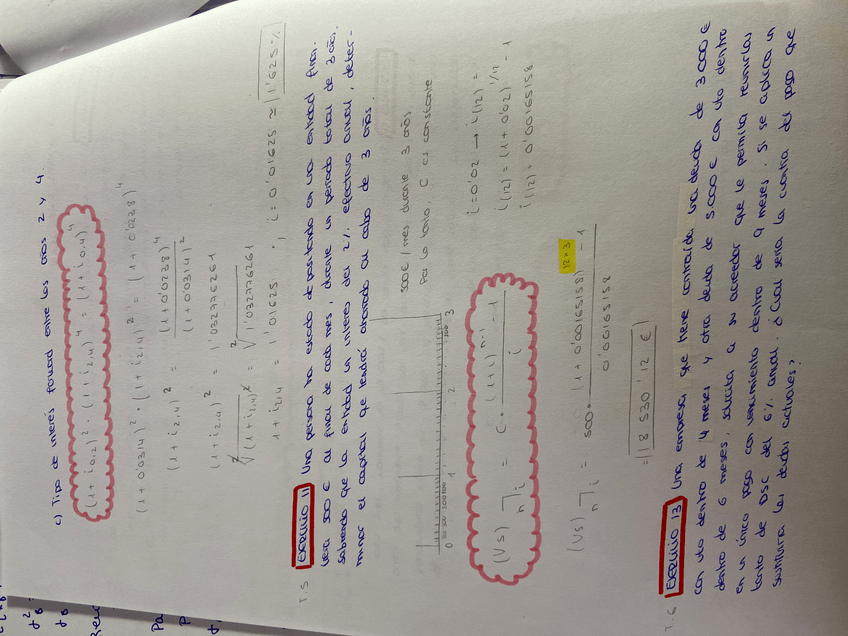 c) Tipo de interés forward entre los años 2 y 4.
(1 + i0,2)² · (1 + i2,4)⁴ = (1 + i0,4)⁴
(1 + 0'0314)² · (1 + i2,4)² = (1 + 0'0238)⁴
(1 + i2,4)² = (1 + 0'0238)⁴ / (1 + 0'0314)²
(1 + i2,4)² = 1'032776261
²√(1 + i2,4)² = ²√1'032776261
1 + i2,4 = 1'01625 ; i = 0'01625 ≈ 1'625%
T.5 EJERCICIO 11 Una persona ha estado depositando en una entidad finan.
500 € al final de cada mes, durante un período total de 3 años.
sabiendo que la entidad un interés del 2% efectivo anual, deter-
minar el capital que tendrá ahorrado al cabo de 3 años.
500€/mes durante 3 años
Por lo tanto, C es constante
0 1 2 3
(VS) n⅂i = C · (1+i)ⁿ - 1 / i
i = 0'02 → i(12) =
i(12) = (1 + 0'02)^1/12 - 1
i(12) = 0'00165158
(VS) n⅂i = 500 · (1 + 0'00165158)^12×3 - 1 / 0'00165158
= 18530'12 €
T.6 EJERCICIO 13 Una empresa, que tiene contraída una deuda de 3000 €
con vto dentro de 4 meses y otra deuda de 5.000 € con vto dentro
dentro de 6 meses, solicita a su acreedor que le permita reunirlas
en un único pago con vencimiento dentro de 9 meses. Si se aplica un
tanto de DSC del 6% anual. ¿Cuál sería la cuantía del pago que
sustituiría las deudas actuales?